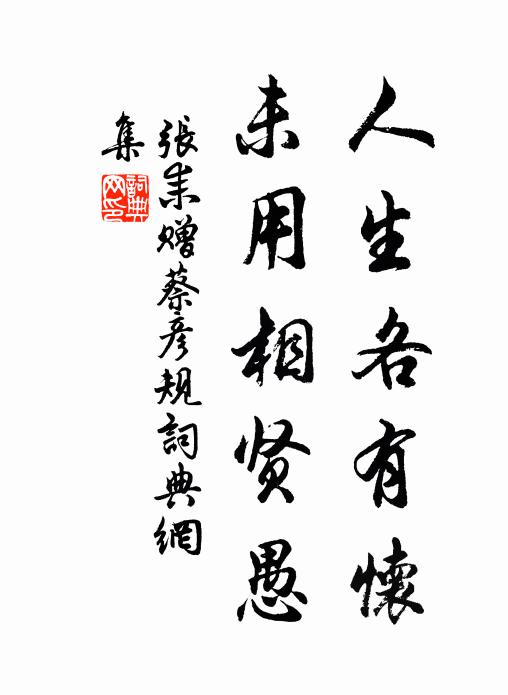 人生各有懷
未用相贤愚
張耒赠蔡彦規詞典網
集
詞典
网印